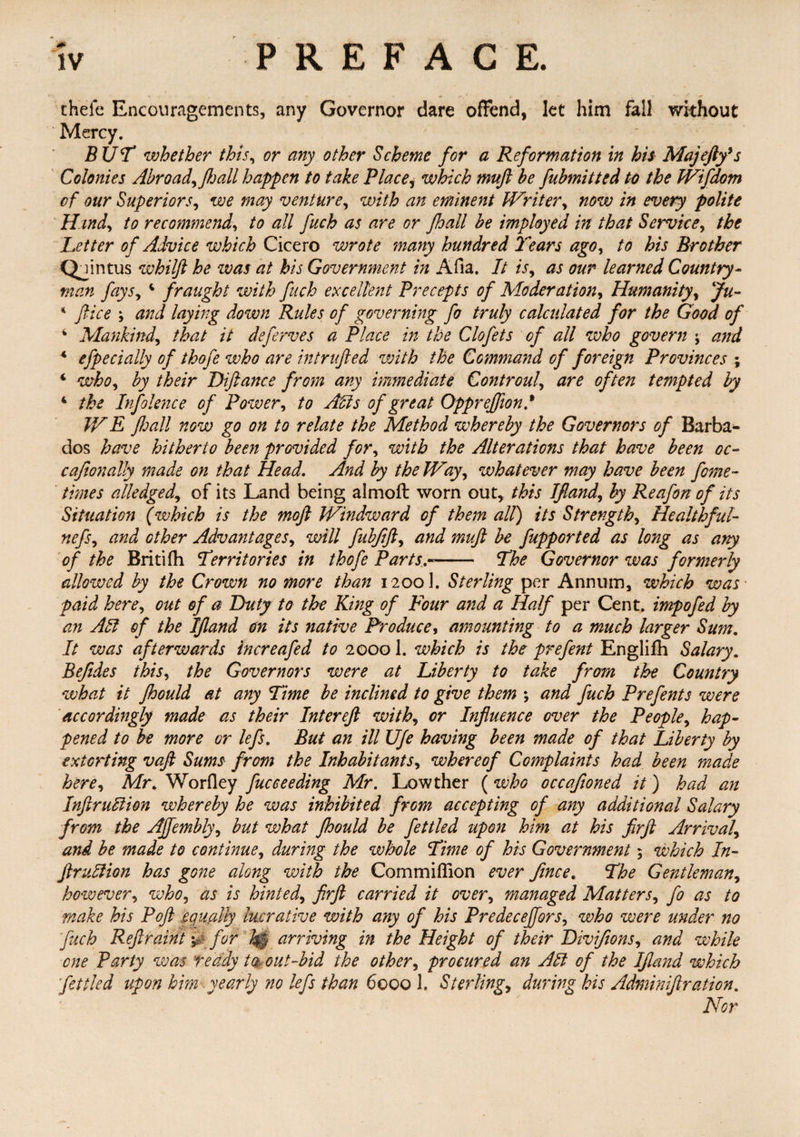 iv PREFACE.
theſe Encouragements, any Governor dare offend, let him fall without
Mercy.
BUT whether this, or any other Scheme for a Reformation in his Majeſty's
Colonies Abroad, ſhall happen to take Place, which muſt be ſubmitted to the Wiſdom
of our Superiors, we may venture, with an eminent Writer, now in every polite
Hand, to recommend, to all ſuch as are or ſhall be imployed in that Service, the
Letter of Advice which Cicero wrote many hundred Years ago, to his Brother
Quintus whilſt he was at his Government in Aſia. It is, as our learned Country-
man ſays, ‘ fraught with ſuch excellent Precepts of Moderation, Humanity, Ju-
‘ ſtice ; and laying down Rules of governing ſo truly calculated for the Good of
‘ Mankind, that it deſerves a Place in the Cloſets of all who govern ; and
‘ eſpecially of thoſe who are intruſted with the Command of foreign Provinces ;
‘ who, by their Diſtance from any immediate Controul, are often tempted by
‘ the Inſolence of Power, to Acts of great Oppreſſion.’
WE ſhall now go on to relate the Method whereby the Governors of Barba-
dos have hitherto been provided for, with the Alterations that have been oc-
caſionally made on that Head. And by the Way, whatever may have been ſome-
times alledged, of its Land being almoſt worn out, this Iſland, by Reaſon of its
Situation (which is the moſt Windward of them all) its Strength, Healthful-
neſs, and other Advantages, will ſubſiſt, and muſt be ſupported as long as any
of the Britiſh Territories in thoſe Parts.—— The Governor was formerly
allowed by the Crown no more than 1200 l. Sterling per Annum, which was
paid here, out of a Duty to the King of Four and a Half per Cent. impoſed by
an Act of the Iſland on its native Produce, amounting to a much larger Sum.
It was afterwards increaſed to 2000 l. which is the preſent Engliſh Salary.
Beſides this, the Governors were at Liberty to take from the Country
what it ſhould at any Time be inclined to give them ; and ſuch Preſents were
accordingly made as their Intereſt with, or Influence over the People, hap-
pened to be more or leſs. But an ill Uſe having been made of that Liberty by
extorting vaſt Sums from the Inhabitants, whereof Complaints had been made
here, Mr. Worſley ſucceeding Mr. Lowther ( who occaſioned it ) had an
Inſtruction whereby he was inhibited from accepting of any additional Salary
from the Aſſembly, but what ſhould be ſettled upon him at his firſt Arrival,
and be made to continue, during the whole Time of his Government ; which In-
ſtruction has gone along with the Commiſſion ever ſince. The Gentleman,
however, who, as is hinted, firſt carried it over, managed Matters, ſo as to
make his Poſt equally lucrative with any of his Predeceſſors, who were under no
ſuch Reſtraint for arriving in the Height of their Diviſions, and while
one Party was ready to out-bid the other, procured an Act of the Iſland which
ſettled upon him yearly no leſs than 6000 l. Sterling, during his Adminiſtration.
Nor